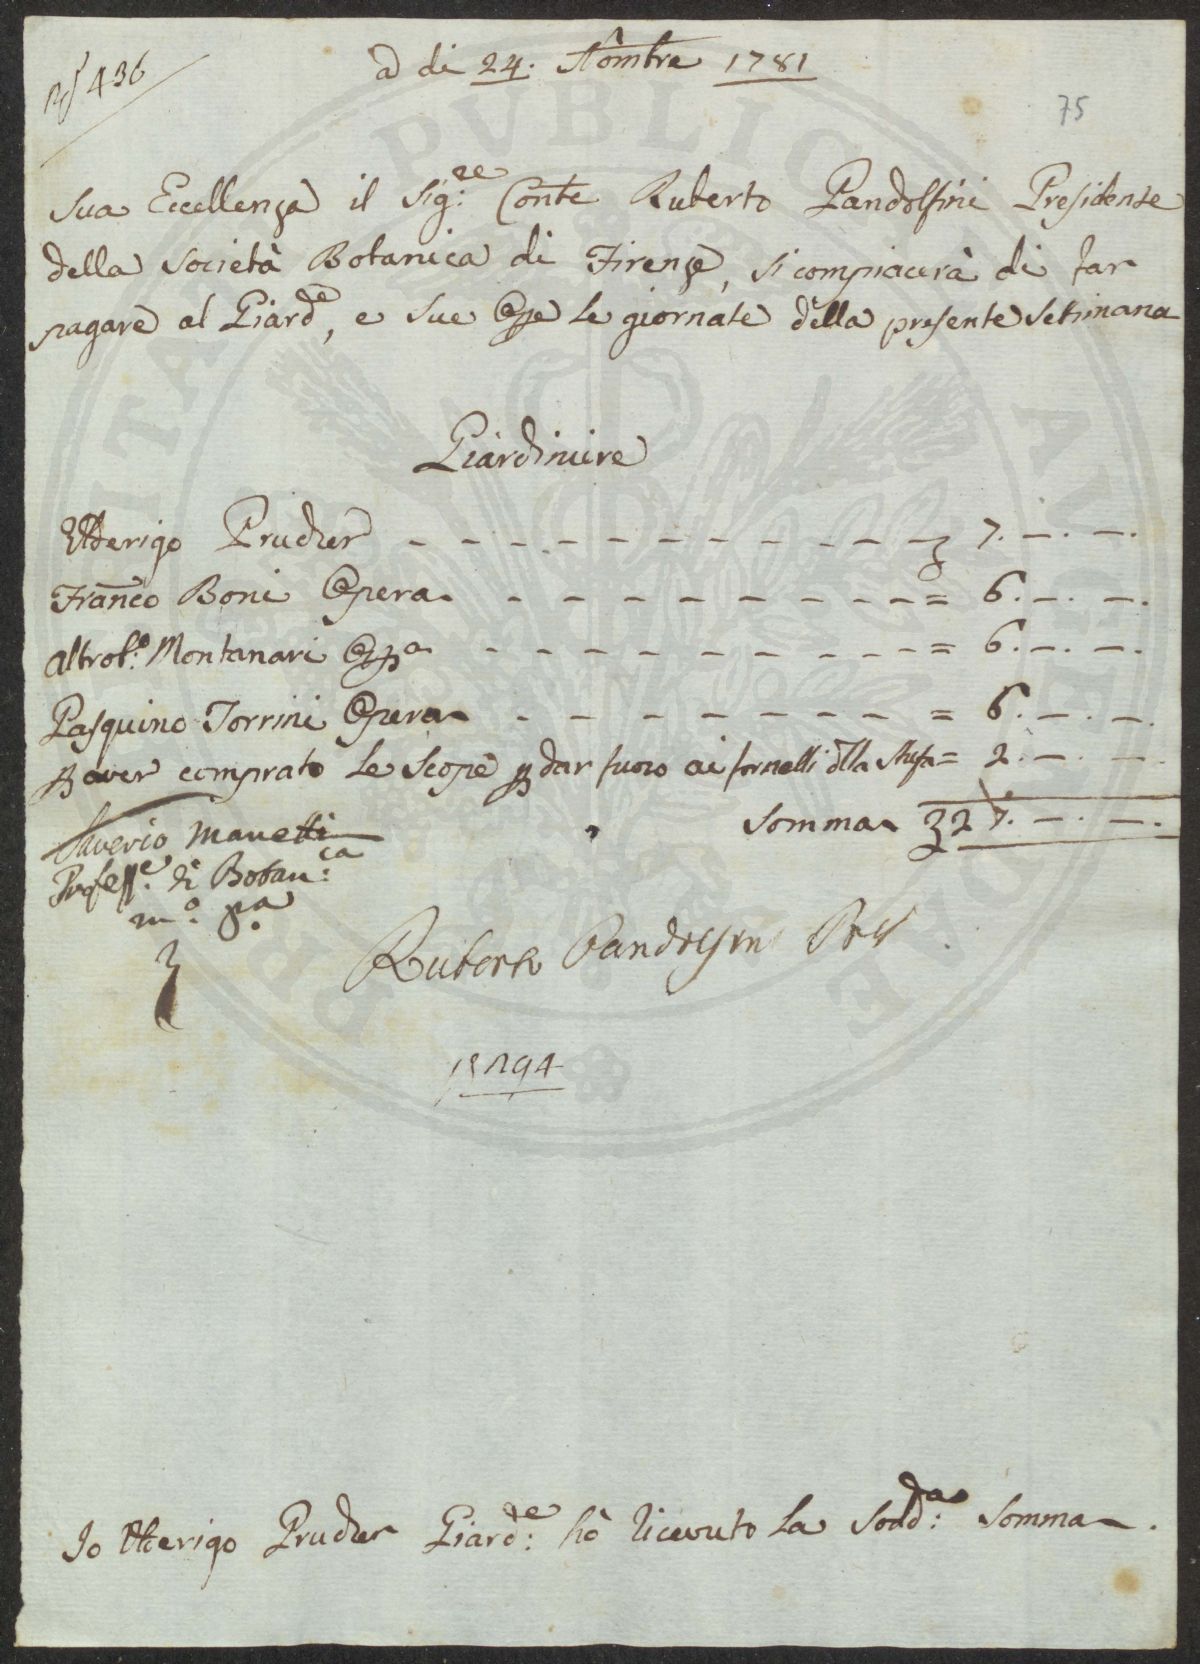 436
a di 24. Nombre 1781
75
Sua Eccellenza il Sig:re Conte Ruberto Pandolfini Presidente
della Società Botanica di Firenze, si compiacerà di far
pagare al Giard:e, e sue Oppe le giornate della presente Settimana
Giardiniere
Utterigo Pruchzer 7. — . — .
Franco Boni Opera = 6. — . — .
Montanari Oppa = 6. — . — .
Pasquino Torrini Opera = 6. — . — .
P aver comprato le Scope p dar fuoco ai fornelli dlla stufa = 2. — . — .
Somma 27. — . — .
Saverio Manetti
Profess:e di Botan:ca
m:o p:a
Ruberto Pandolfini
294
PVBLICAE
Io Utterigo Giard:e hò ricevuto la Sodd:a Somma.